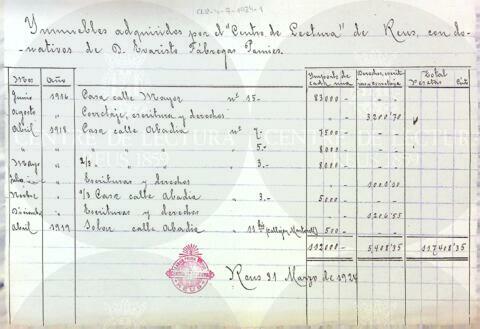 Ynmuebles adquiridos por el "Centro de Lectura" de Reus, con do-
nativos de D. Evaristo Fábregas Pamies.
Mes Año Importe de cada una Derechos, escritu- Total
Pesetas Cénts
Junio 1916 Casa calle Mayor nº 15.- 83000 - - -
Agosto " Corretaje, escritura y derechos - - 3200'70 "
Abril 1918 Casa calle Abadia nº 7.- 7500 - - -
" " " " " " 5.- 8000 - - -
Mayo " 2/3 " " " 3.- 8000 - - -
" Escrituras y derechos - -
" 1/3 Casa calle Abadia " 3.- 5000 - - -
Diciembre " Escrituras y derechos - - 1206'55
Abril 1919 Solar calle Abadia " 11 bis 500 - - -
112000 - 5,408'35 117408'35
Reus 31 Marzo de 1924